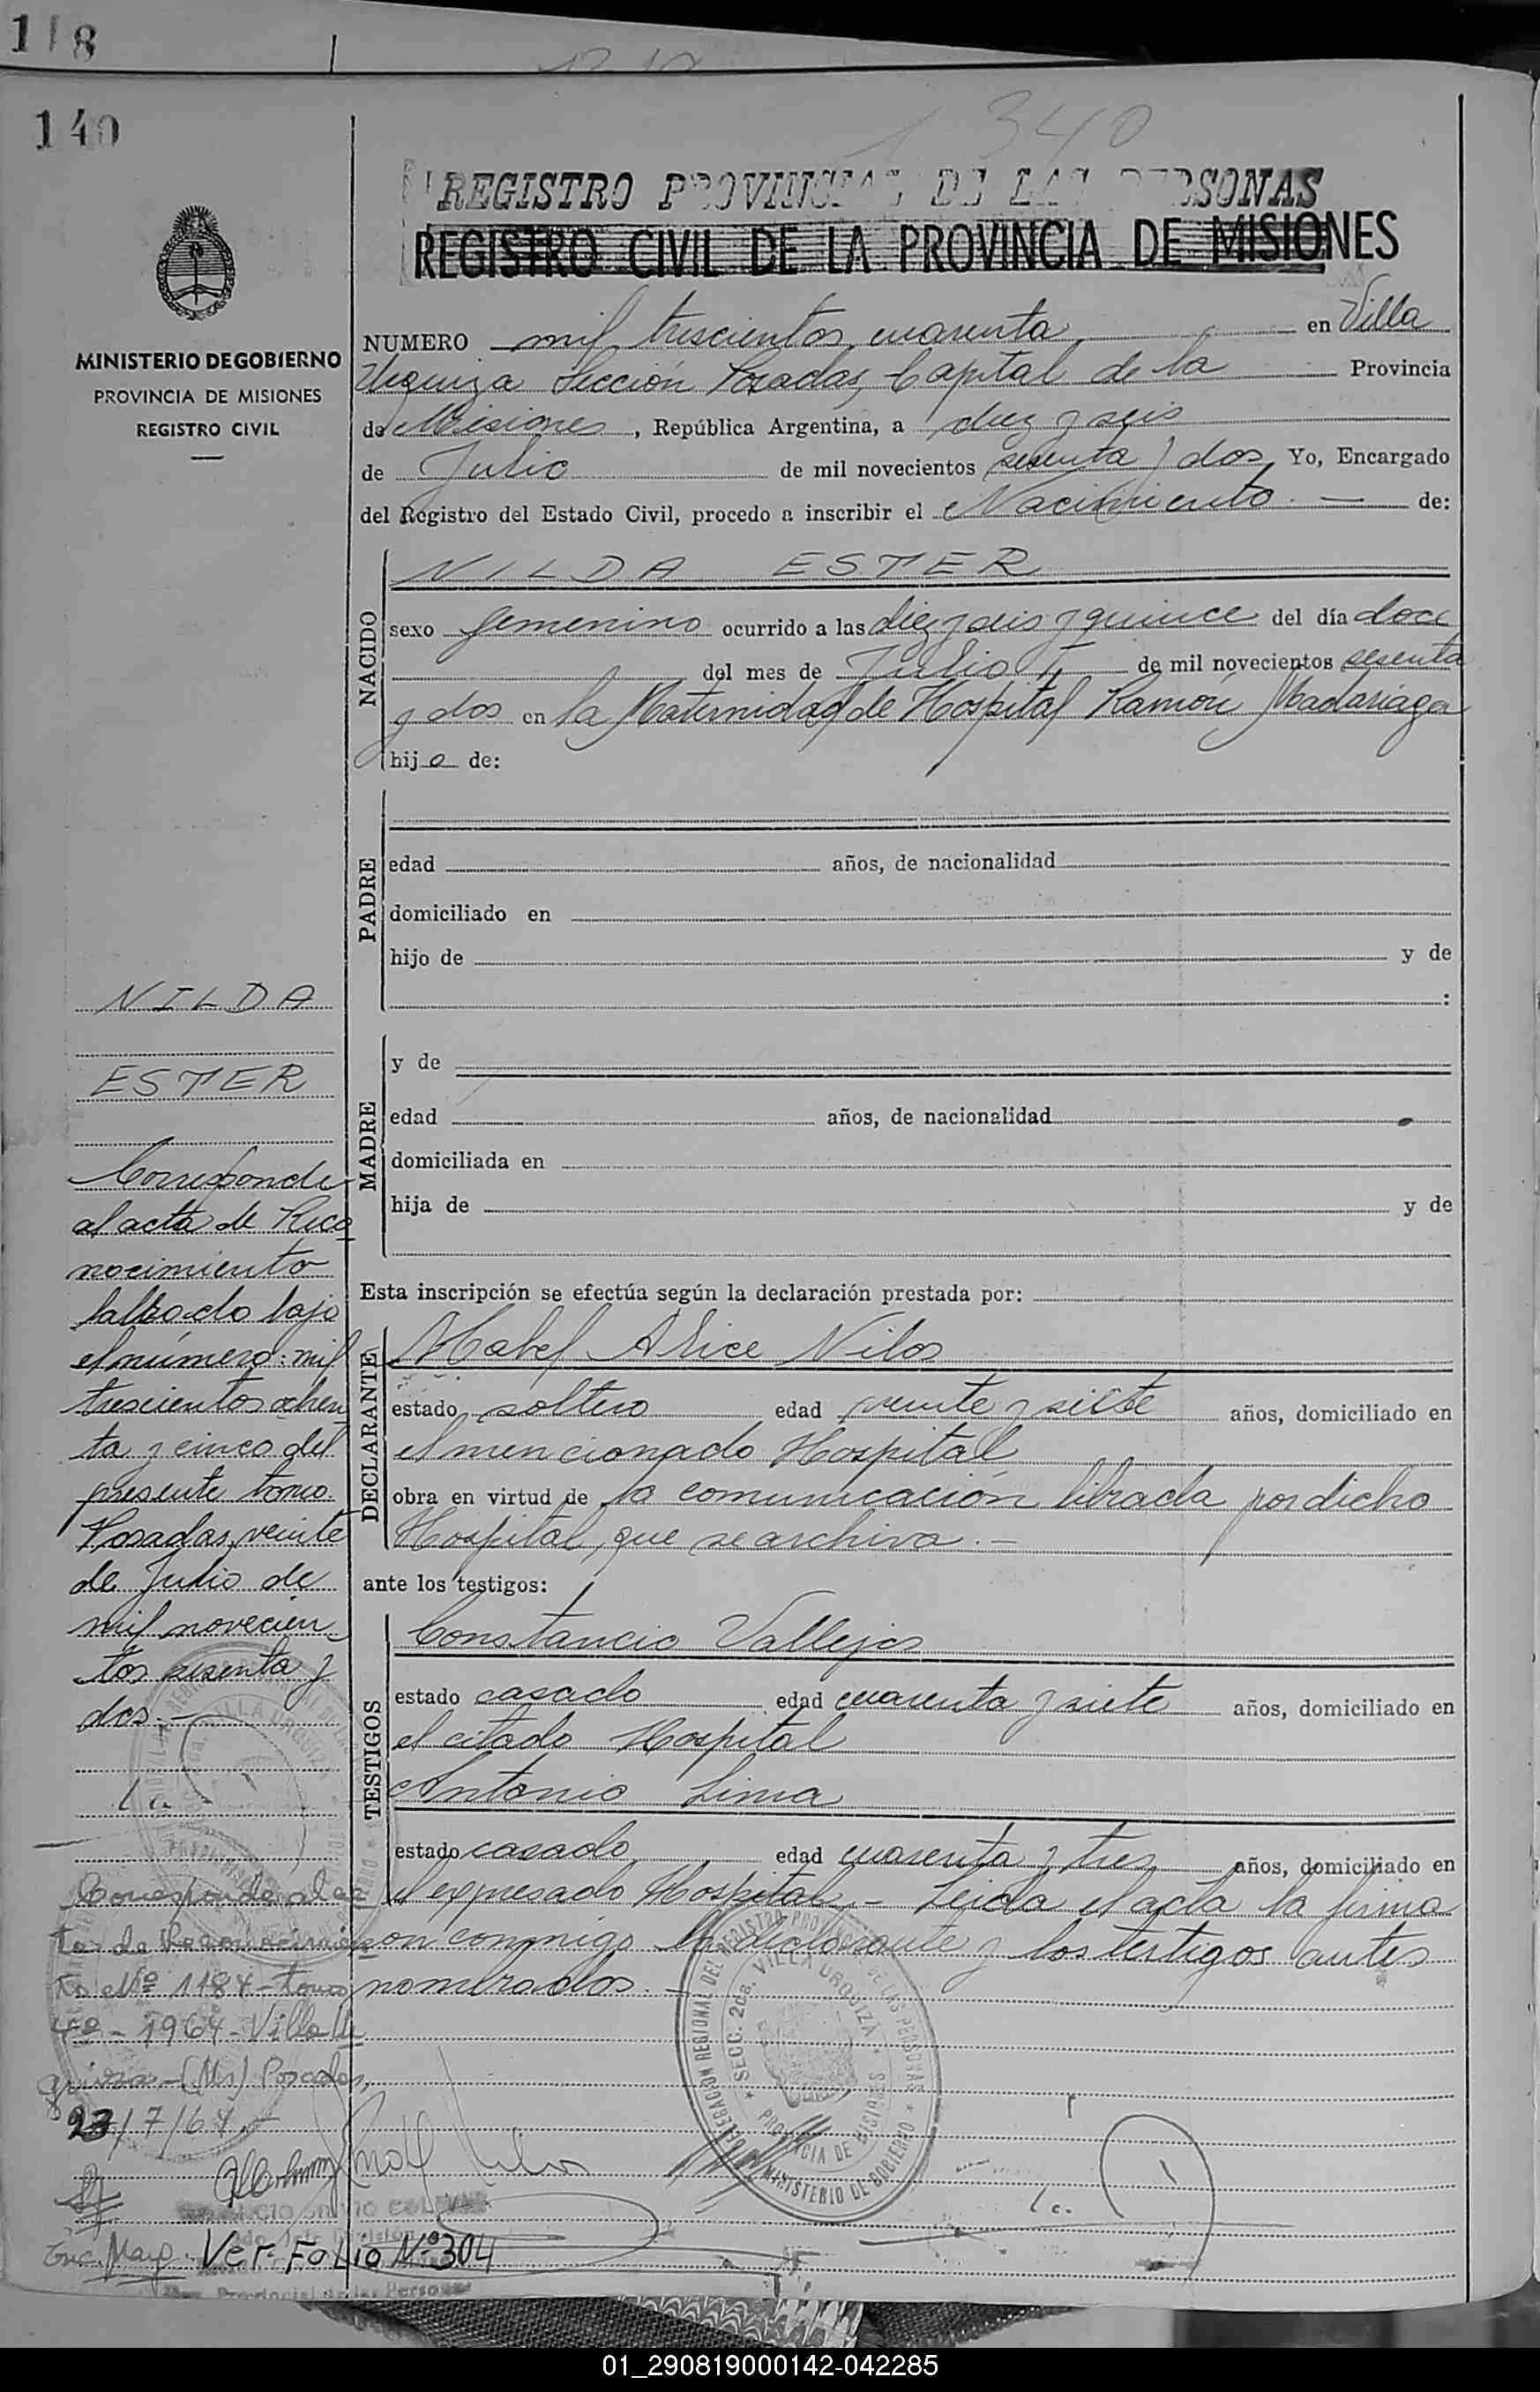 118
140
1340
REGISTRO PROVINCIAL DE LAS PERSONAS
REGISTRO CIVIL DE LA PROVINCIA DE MISIONES
MINISTERIO DE GOBIERNO
PROVINCIA DE MISIONES
REGISTRO CIVIL
NUMERO mil trescientos cuarenta en Villa
Urquiza Sección Posadas, Capital de la Provincia
de Misiones, República Argentina, a diez y seis
de Julio de mil novecientos sesenta y dos, Yo, Encargado
del Registro del Estado Civil, procedo a inscribir el Nacimiento.— de:
NACIDO
NILDA ESTER
sexo femenino ocurrido a las diez y seis y quince del día doce
del mes de Julio de mil novecientos sesenta
y dos en la Maternidad de Hospital Ramón Madariaga
hija de:
PADRE
edad años, de nacionalidad
domiciliado en
hijo de y de
:
MADRE
y de
edad años, de nacionalidad
domiciliada en
hija de y de
Esta inscripción se efectúa según la declaración prestada por:
DECLARANTE
Mabel Alice Nilos
estado soltero edad veinte y siete años, domiciliado en
el mencionado Hospital
obra en virtud de la comunicación librada por dicho
Hospital, que se archiva.—
ante los testigos:
TESTIGOS
Constancio Vallejos
estado casado edad cuarenta y siete años, domiciliado en
el citado Hospital
Antonio Lima
estado casado edad cuarenta y tres años, domiciliado en
el expresado Hospital.— Leida el acta la firma
on conmigo la declarante y los testigos antes
nombrados.—
NILDA
ESTER
Corresponde
al acta de Reco
nocimiento
labrado bajo
el número: mil
trescientos ochen
ta y cinco del
presente tomo.
Posadas, veinte
de Julio de
mil novecien
tos sesenta y
dos.—
Corresponde al ac
ta de Reconocimien
to Nº 1184 - tomo
4º - 1964 - Villa U
quiza - (Ms) Posadas,
23/7/64.
Enc. Mayo.
Ver Folio Nº 304
DELEGACIÓN REGIONAL DEL REGISTRO PROVINCIAL DE LAS PERSONAS
SECC. 2da. VILLA URQUIZA
PROVINCIA DE MISIONES
MINISTERIO DE GOBIERNO
01_290819000142-042285